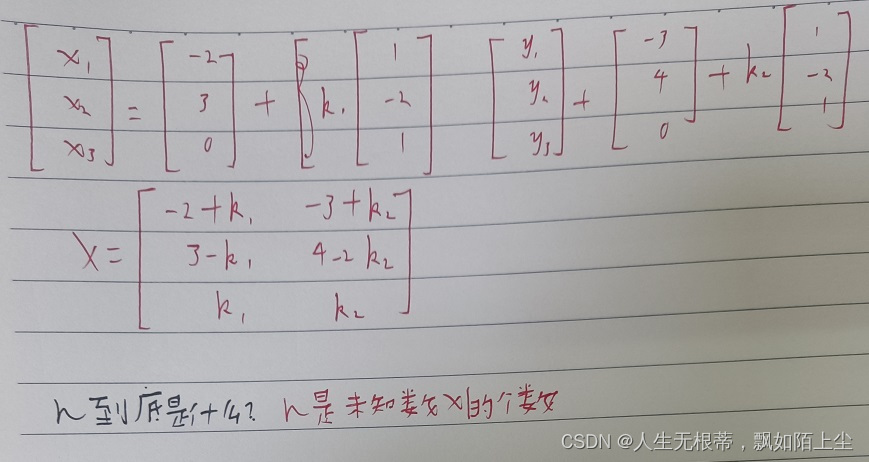 [x₁ x₂ x₃] = [-2 3 0] + k₁ [1 -2 1] [y₁ y₂ y₃] + [-3 4 0] + k₂ [1 -2 1]
X = [-2+k₁ -3+k₂
3-k₁ 4-2k₂
k₁ k₂]
n到底是什么? n是未知数X的个数
CSDN @人生无根蒂，飘如陌上尘